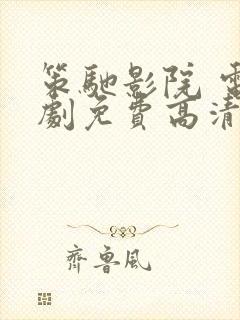 策馳影院 電
劇免費高清
齊魯風